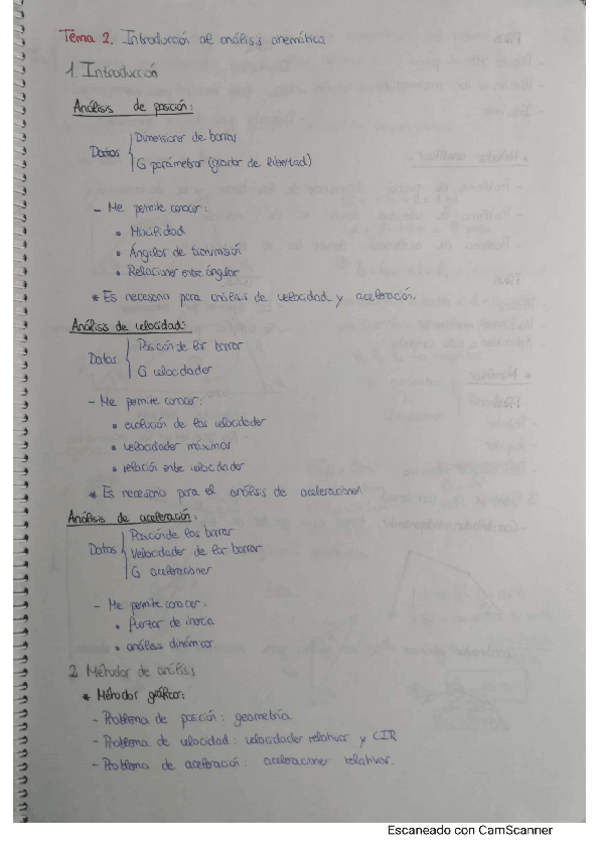 Tema 2. Introducción al análisis cinemático.
1. Introducción
Análisis de posición:
Datos
Dimensiones de barras
G parámetros (grados de libertad)
- Me permite conocer:
• Movilidad
• Ángulos de transmisión
• Relaciones entre ángulos
* Es necesario para análisis de velocidad y aceleración.
Análisis de velocidad:
Datos
Posición de las barras
G velocidades
- Me permite conocer:
• evolución de las velocidades
• velocidades máximas
• relación entre velocidades
* Es necesario para el análisis de aceleraciones.
Análisis de aceleración:
Datos
Posición de las barras
Velocidades de las barras
G aceleraciones
- Me permite conocer:
• fuerzas de inercia
• análisis dinámicos
2. Métodos de análisis
* Métodos gráficos:
- Problema de posición: geometría
- Problema de velocidad: velocidades relativas y CIR
- Problema de aceleración: aceleraciones relativas.
Escaneado con CamScanner